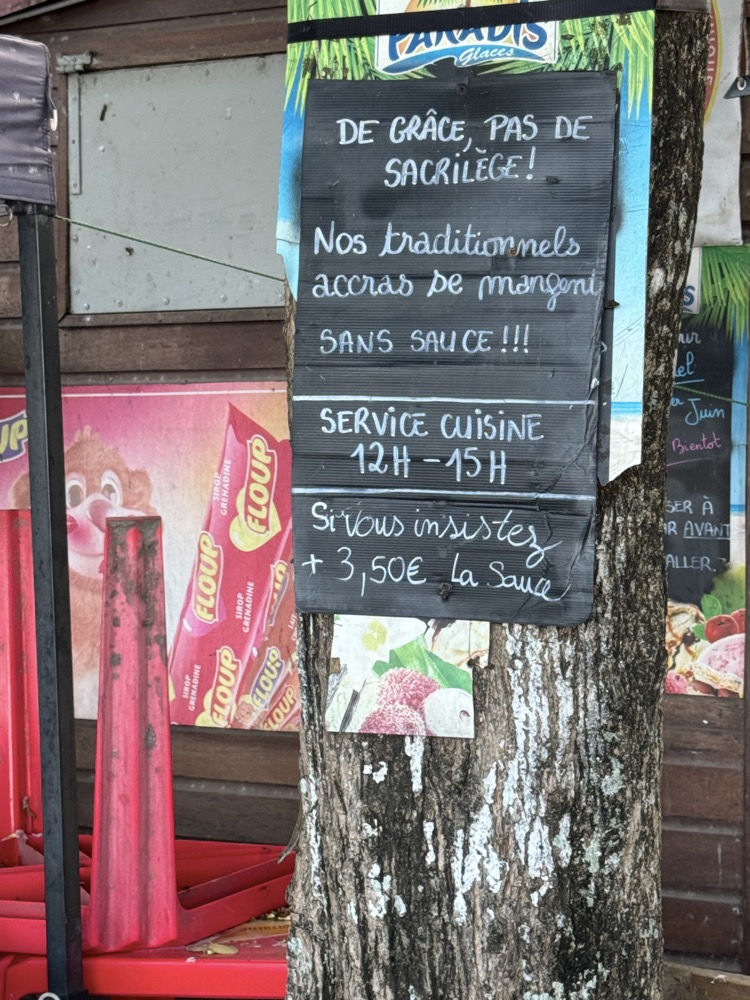 PARADIS
Glaces
DE GRÂCE, PAS DE
SACRILÈGE!
Nos traditionnels
accras se mangent
SANS SAUCE!!!
SERVICE CUISINE
12H - 15H
Si vous insistez
+ 3,50€ La Sauce
FLOUP
SIROP
GRENADINE
FLOUP
SIROP
GRENADINE
FLOUP
SIROP
GRENADINE
FLOUP
Juin
Bientôt
SER À
R AVANT
ALLER.